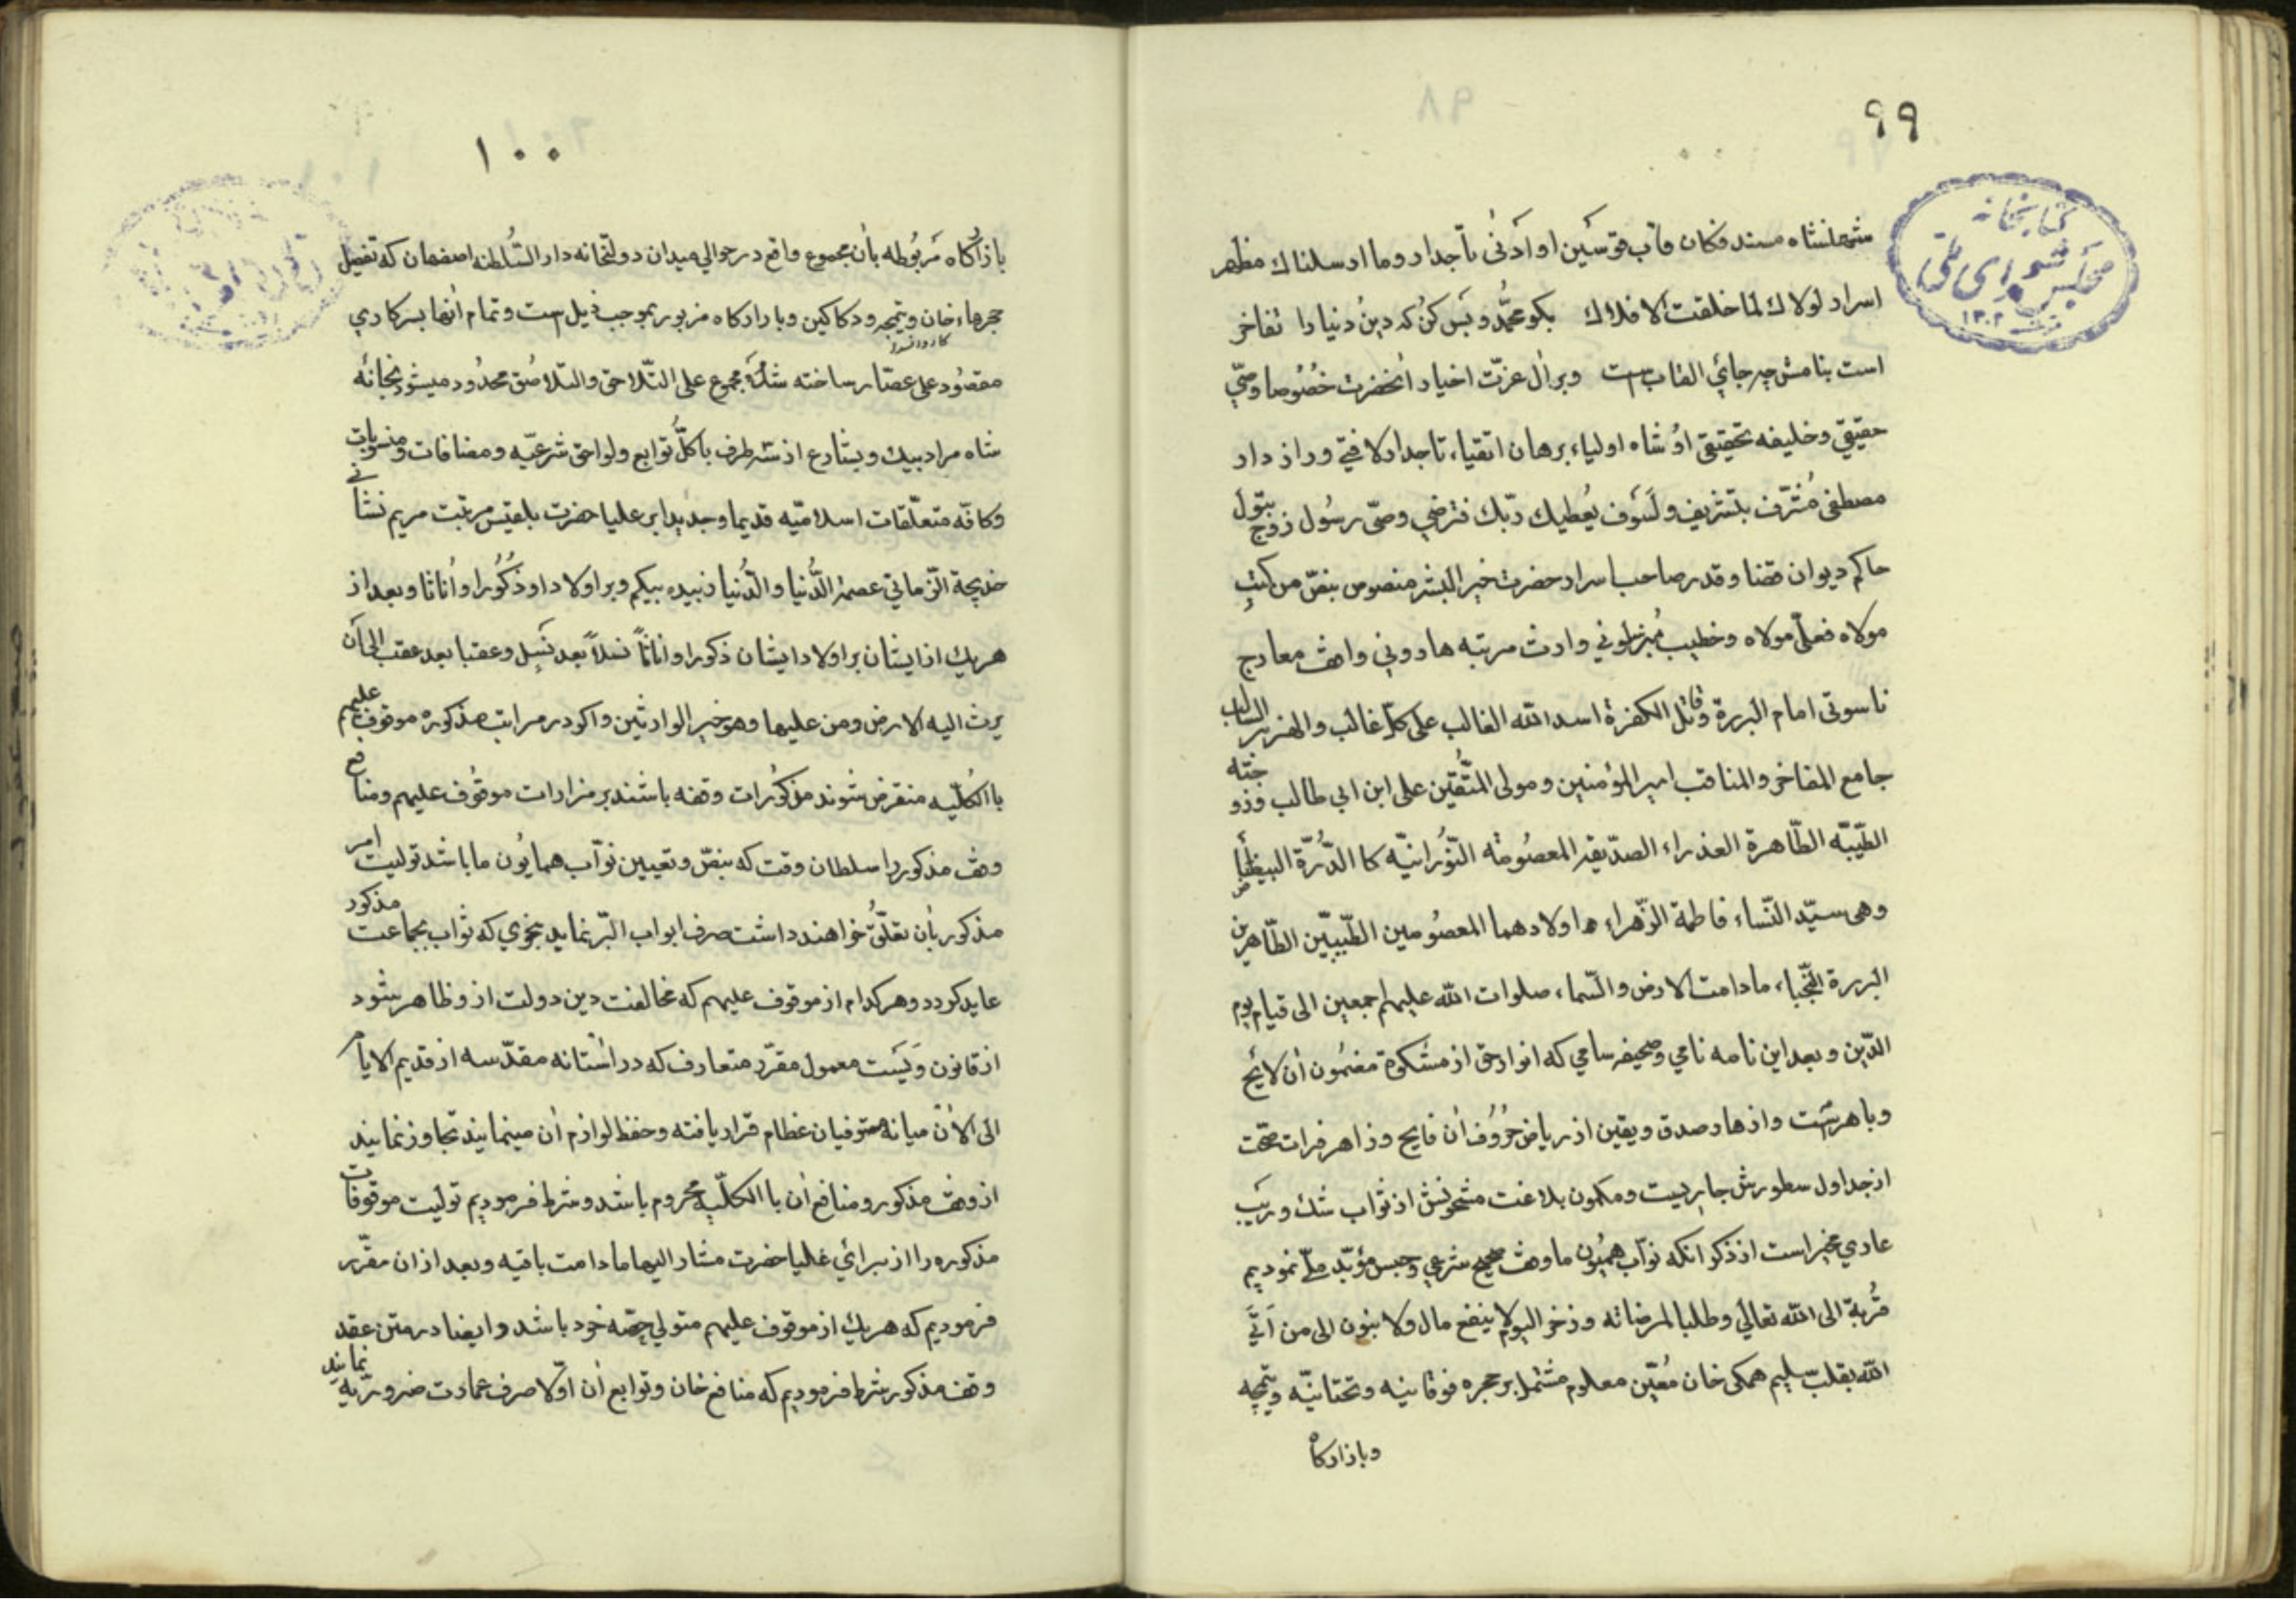 ۹۹
کتابخانه
مجلس شورای ملی
۱۳۰۲
شهانشاه مسند فکان قاب قوسین او ادنی تاجدار وما ارسلناك مظهر
اسرار لولاك لما خلقت الافلاك بکو محمد و بس کن که دین دنیا را تفاخر
است بنامش چه جائی القاب است وبر ال عزت اخیار انحضرت خصوصا وصی
حقیقی وخلیفه تحقیقی او شاه اولیاء برهان اتقیاء تاجدار لا فتی وراز دار
مصطفی مشرف بتشریف ولسوف یعطیك ربك فترضی وصی رسول زوج بتول
حاکم دیوان قضا وقدر صاحب اسرار حضرت خیر البشر منصوص بنص من کنت
مولاه فعلی مولاه وخطیب منبر سلونی وارث مرتبه هارونی واقف معارج
ناسوتی امام البررة وقاتل الکفرة اسد الله الغالب علی کل غالب والهزبر السالب
جامع المفاخر والمناقب امیر المؤمنین ومولی المتقین علی ابن ابی طالب وزوجته
الطیبه الطاهرة العذراء الصدیقه المعصومه النورانیه کا الدرة البیضاء
وهی سید النساء فاطمة الزهراء و اولادهما المعصومین الطیبین الطاهرین
البررة النجباء مادامت الارض والسماء صلوات الله علیهم اجمعین الی قیام یوم
الدین وبعد این نامه نامی وصحیفه سامی که انوار حق از مشکوة مضمون ان لایح
وباهر است وازهار صدق ویقین از ریاض حروف ان فایح وزاهر فرات صحت
از جداول سطورش جاریست ومکمون بلاغت مشحونش از ثواب شك وریب
عاری مخبر است از ذکر انکه نواب همیون ما وقف صحیح شرعی وحبس مؤبد ملی نمودیم
قربة الی الله تعالی وطلبا لمرضاته وذخر الیوم لا ینفع مال ولا بنون الی من اتی
الله بقلب سلیم همکی خان معین معلوم مشتمل بر حجره فوقانیه وتحتانیه وتیمچه
وبازارکاه
۱۰۰
بازارکاه مربوطه بان مجموع واقع در حوالی میدان دولتخانه دار السلطنه اصفهان که تفصیل
حجرهاء خان وتیمچه ودکاکین وبازارکاه مزبور بموجب ذیل است وتمام انها بسرکاری
مقصود علی عصار ساخته شده مجموع علی التلاحق والتلاصق محدود میشود بخانه
شاه مراد بیك وبشارع از سه طرف با کل توابع ولواحق شرعیه ومضافات ومنسوبات
وکافه متعلقات اسلامیه قدیما وجدیدا بر علیا حضرت بلقیس مرتبت مریم نشانی
خدیجة الزمانی عصمة الدنیا والدنیا زبیده بیکم وبر اولاد او ذکورا واناثا وبعد از
هریك از ایشان بر اولاد ایشان ذکورا واناثا نسلا بعد نسل وعقبا بعد عقب الی ان
یرث الیه الارض ومن علیها وهو خیر الوارثین واکر در مراتب مذکوره موقوف علیهم
با الکلیه منقرض شوند مذکورات وقفه باشند بر مزارات موقوف علیهم ومنافع
وقف مذکور را سلطان وقت که بنص وتعیین نواب همایون ما باشد تولیت امر
مذکور بان تعلق خواهند داشت صرف ابواب البر نماید بنحوی که ثواب بجماعت مذکور
عاید کردد وهر کدام از موقوف علیهم که مخالفت دین دولت از و ظاهر شود
از قانون و معمول مقرر متعارف که در استانه مقدسه از قدیم الایام
الی الان میانه مستوفیان عظام قرار یافته وحفظ لوازم ان مینمایند تجاوز نمایند
از وقف مذکور ومنافع ان با الکلیه محروم باشد وشرط فرمودیم تولیت موقوفات
مذکوره را از برائی علیا حضرت مشار الیها ما دامت باقیه وبعد از ان مقرر
فرمودیم که هریك از موقوف علیهم متولی حصه خود باشد وایضا در متن عقد
وقف مذکور شرط فرمودیم که منافع خان وتوابع ان اولا صرف عمارت ضروریه نمایند